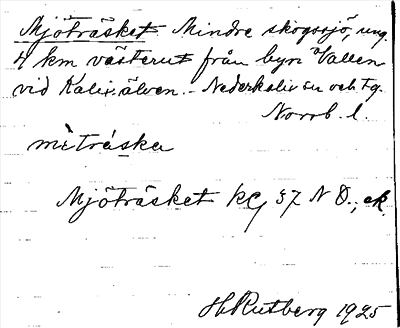 Mjöträsket Mindre skogssjö, ung.
4 km västerut från byn Vallen
vid Kalix älven. - Nederkalix sn och tg.
Norrb. l.
mètráska
Mjöträsket KC 37 N O., ek.
H Rutberg 1925